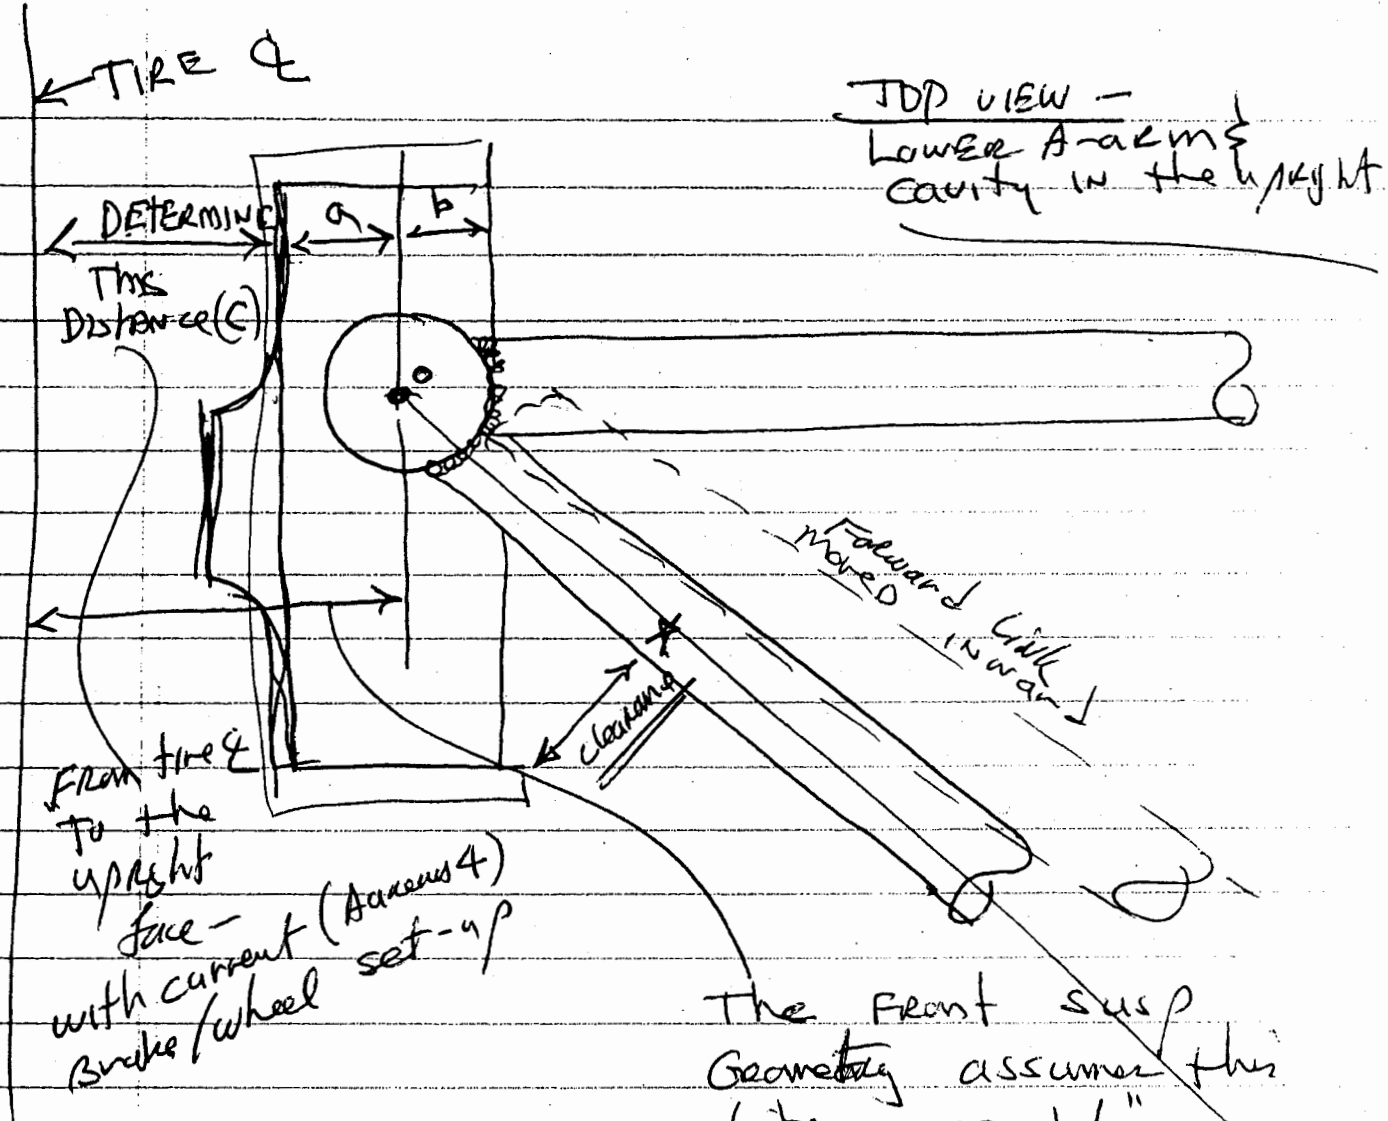 TIRE ℄
TOP VIEW -
LOWER A-aRM &
cavity IN the upright
DETERMINE
a
b
This
Distance (C)
Forward Link
moved INward
clearance
From tire ℄
To the
upright
face -
with current (
Brake/wheel set-up
The Front susp
Geometry assumes this